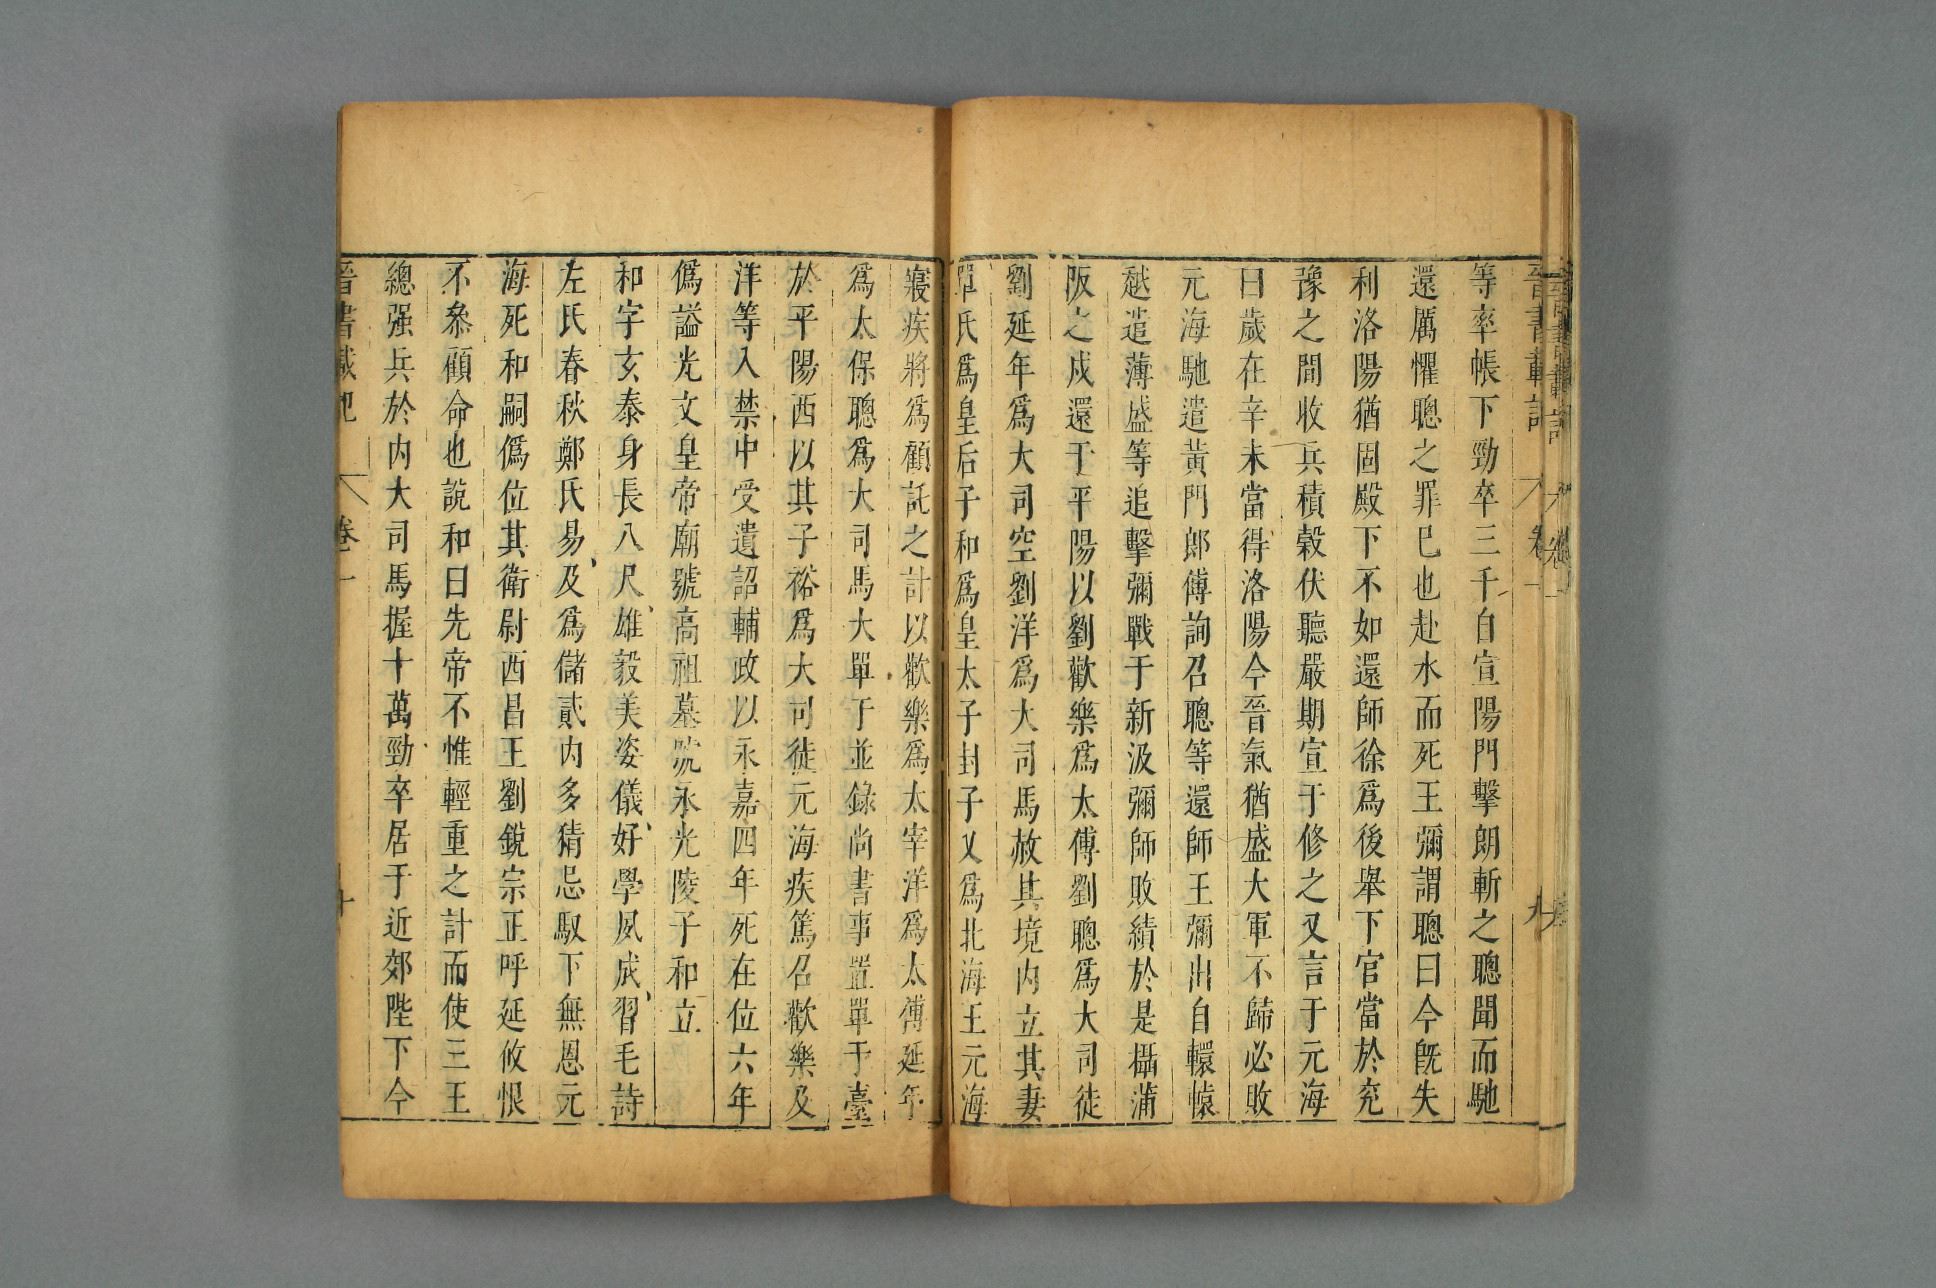 晉書載記 卷一 九
等率帳下勁卒三千自宣陽門擊朗斬之聰聞而馳
還厲懼聰之罪巳也赴水而死王彌謂聰曰今旣失
利洛陽猶固殿下不如還師徐爲後舉下官當於兖
豫之間收兵積穀伏聽嚴期宣于修之又言于元海
曰歲在辛未當得洛陽今晉氣猶盛大軍不歸必敗
元海馳遣黃門郎傅詢召聰等還師王彌出自轘轅
越遣薄盛等追擊彌戰于新汲彌師敗績於是攝蒲
阪之戍還于平陽以劉歡樂爲太傅劉聰爲大司徒
劉延年爲大司空劉洋爲大司馬赦其境内立其妻
單氏爲皇后子和爲皇太子封子乂爲北海王元海
寢疾將爲顧託之計以歡樂爲太宰洋爲太傅延年
爲太保聰爲大司馬大單于並錄尚書事置單于臺
於平陽西以其子裕爲大司徒元海疾篤召歡樂及
洋等入禁中受遺詔輔政以永嘉四年死在位六年
僞謚光文皇帝廟號高祖墓號永光陵子和立
和字玄泰身長八尺雄毅美姿儀好學夙成習毛詩
左氏春秋鄭氏易及爲儲貳内多猜忌馭下無恩元
海死和嗣僞位其衛尉西昌王劉銳宗正呼延攸恨
不叅顧命也說和曰先帝不惟輕重之計而使三王
總强兵於内大司馬握十萬勁卒居于近郊陛下今
晉書載記 卷一 十